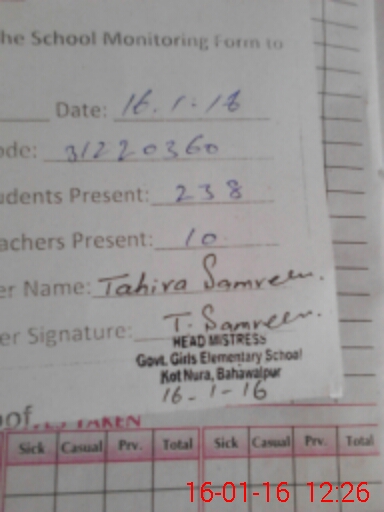 he School Monitoring Form to
Date: 16.1.16
ode: 31220360
udents Present: 238
achers Present: 10
er Name: Tahira Samreen.
er Signature: T. Samreen.
HEAD MISTRESS
Govt. Girls Elementary School
Kot Nura, Bahawalpur
16-1-16
of
TAKEN
Sick Casual Prv. Total Sick Casual Prv. Total
16-01-16 12:26